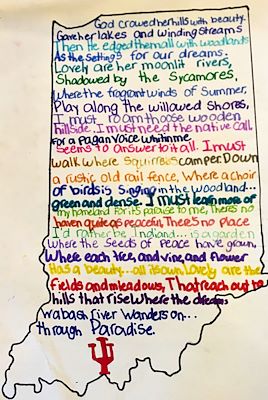 God crowed her hills with beauty.
Gave her lakes and winding streams
Then He edged them all with woodlands
As the settings for our dreams.
Lovely are her moonlit rivers,
Shadowed by the Sycamores,
where the fragrant winds of Summer,
Play along the willowed shores,
I must roam those wooden
hillside. I must need the native call
For a pagan voice whitin me
seems to answer to it all. I must
walk where squirrels camper. Down
a rustic old rail fence, Where a choir
of birds is singing in the woodland...
green and dense. I must learn more of
my homeland for it's paradise to me, There's no
haven quite as peaceful, There's no place
I'd rather be. Indiand... is a garden
where the seeds of Peace have grown,
Where each tree, and vine, and flower
Has a beauty... all its own. Lovely are the
fields and meadows, That reach out to
hills that rise Where the dreams
wabash river wanders on...
through Paradise.
IU